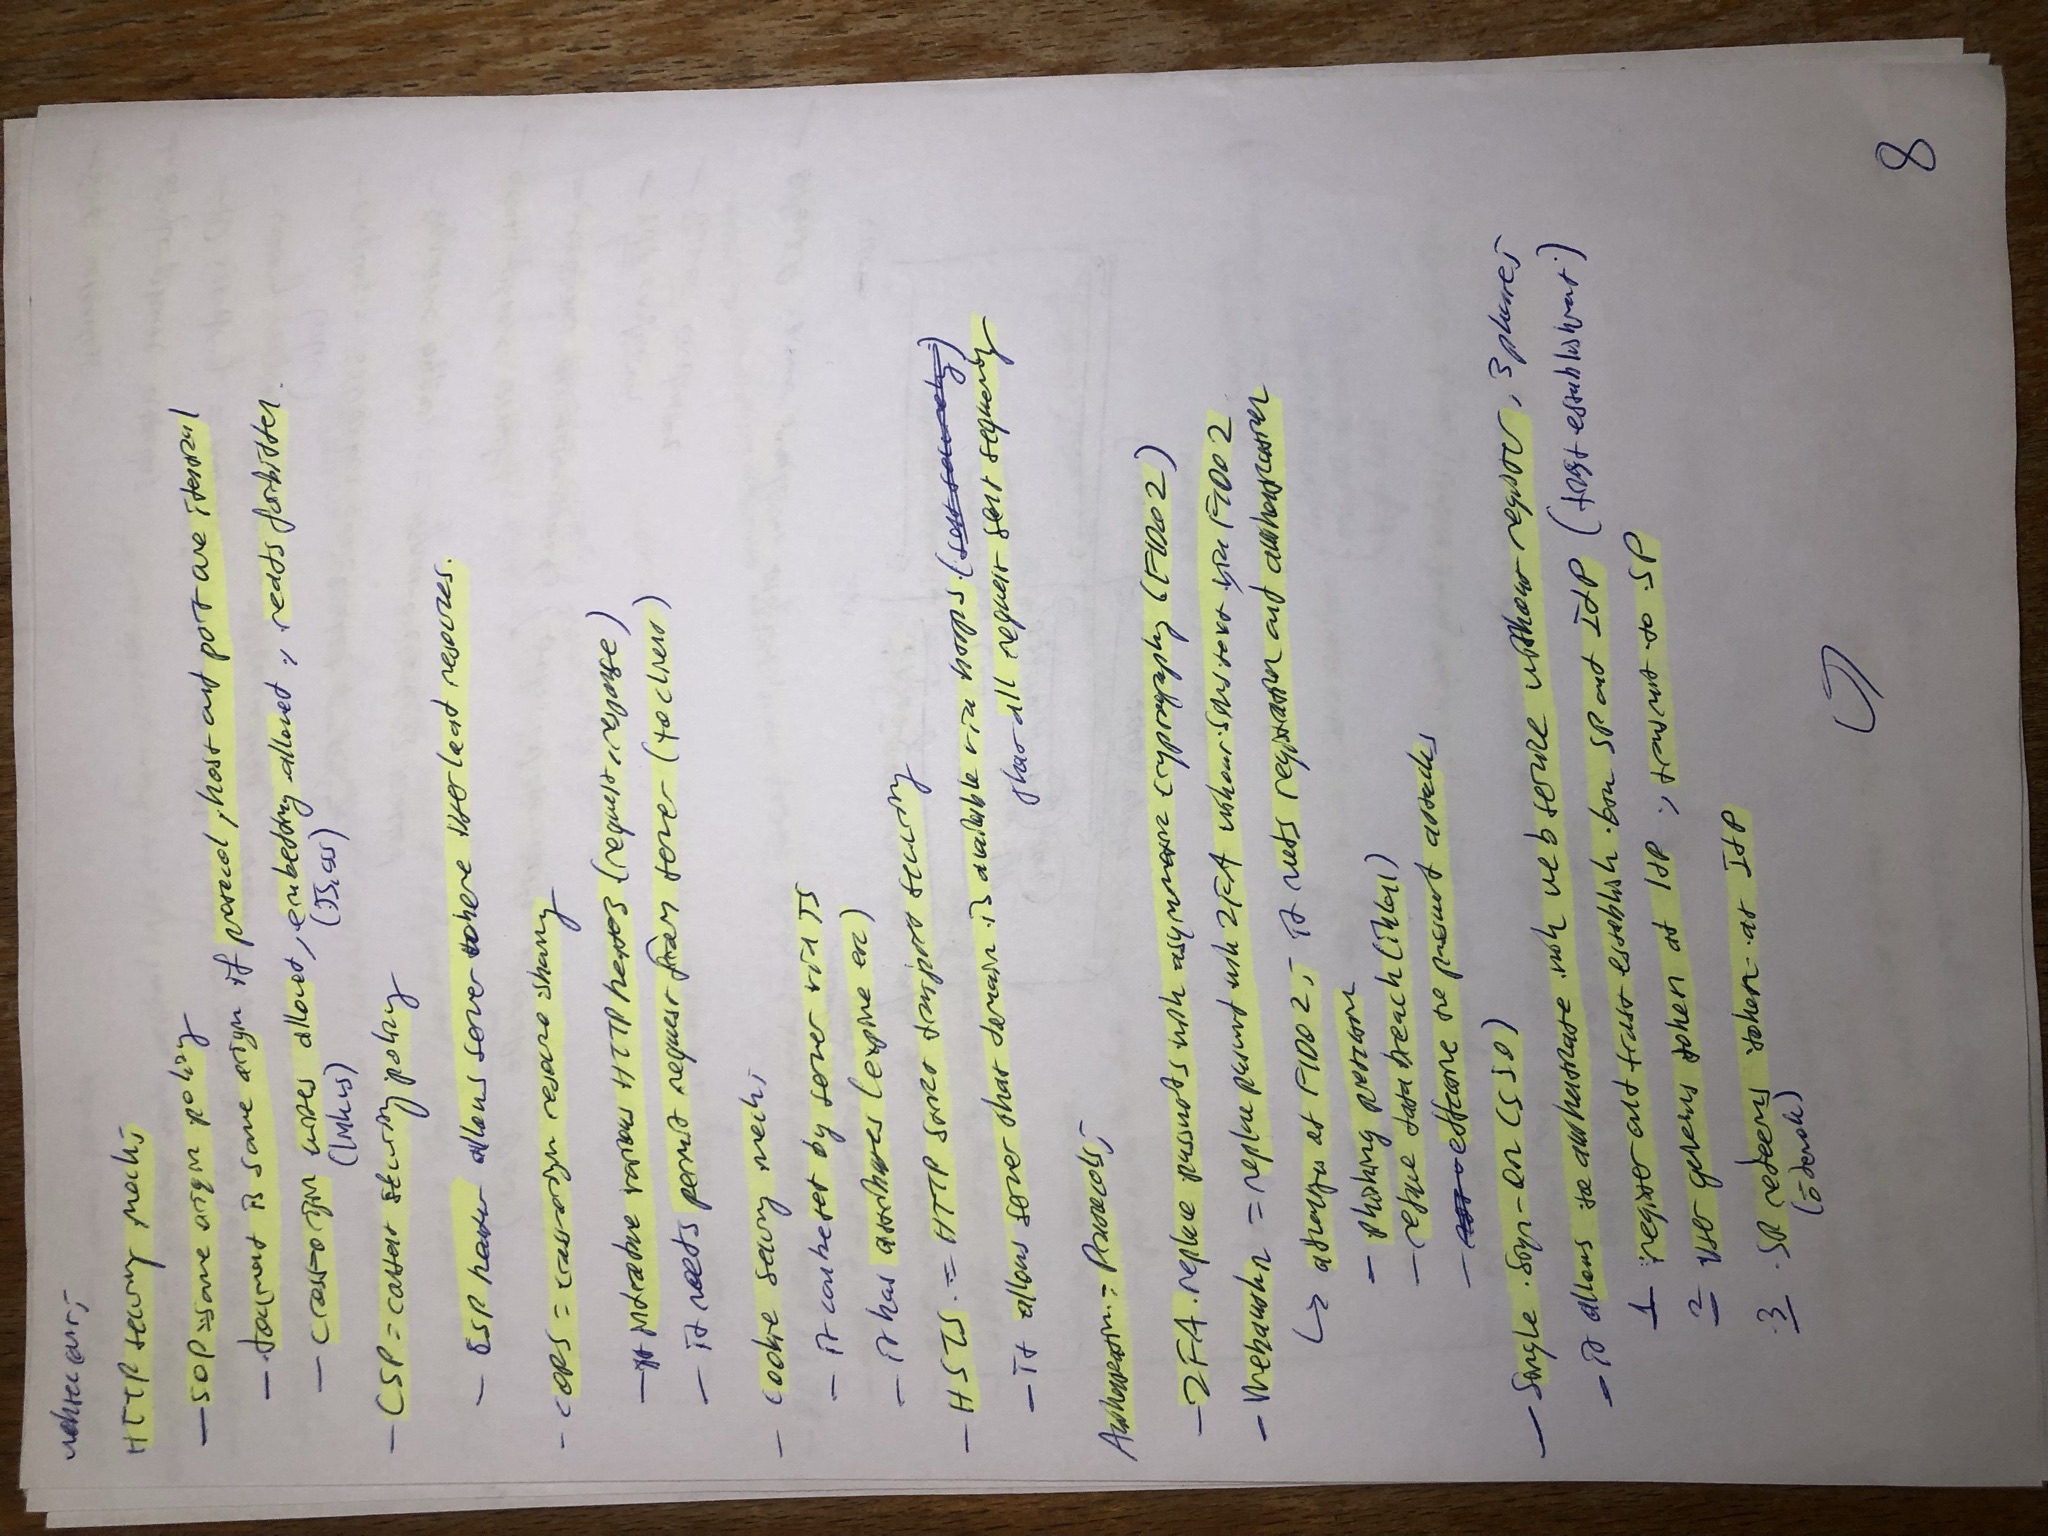 HTTP security mechs
- SOP = same origin policy
- document is same origin if protocol, host and port are identical
- cross-origin writes allowed, embedding allowed, reads forbidden.
(links) (JS, css)
- CSP = content security policy
- CSP header allows server where user load resources.
- CORS = cross-origin resource sharing
- introduce various HTTP headers (request, response)
- it needs permit request from server (to client)
- cookie security mechs
- it can be set by server via JS
- it has attributes (expire etc)
- HSTS = HTTP strict transport security
- it allows server that domain is available via https
that all request sent securely
Authentication Protocols;
- 2FA replace passwords with asymmetric cryptography (FIDO2)
- Webauthn = replace password with 2FA without via FIDO2
↳ advantages of FIDO2; it needs registration and authentication
- phishing
- data breach
- attacks
- Single Sign-on (SSO)
- it allows to authenticate with web service without register, 3 phases
1 register and trust establish. SP and IdP (trust establishment)
2 user generates token at IdP, transmit to SP
3 SP redeems token at IdP
8